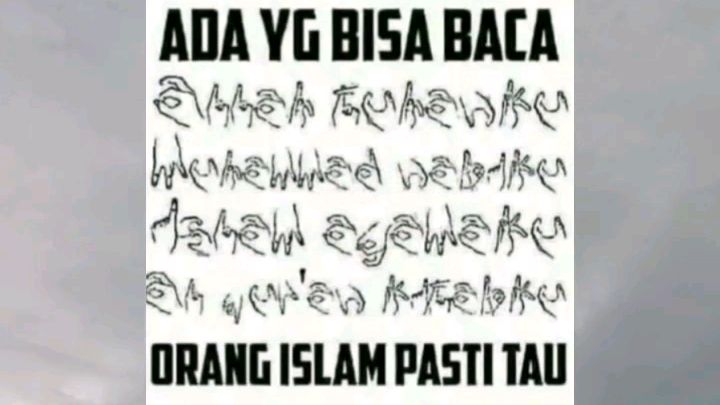 ADA YG BISA BACA
Allah Tuhanku
Muhammad nabiku
Islam agamaku
Al qur'an kitabku
ORANG ISLAM PASTI TAU